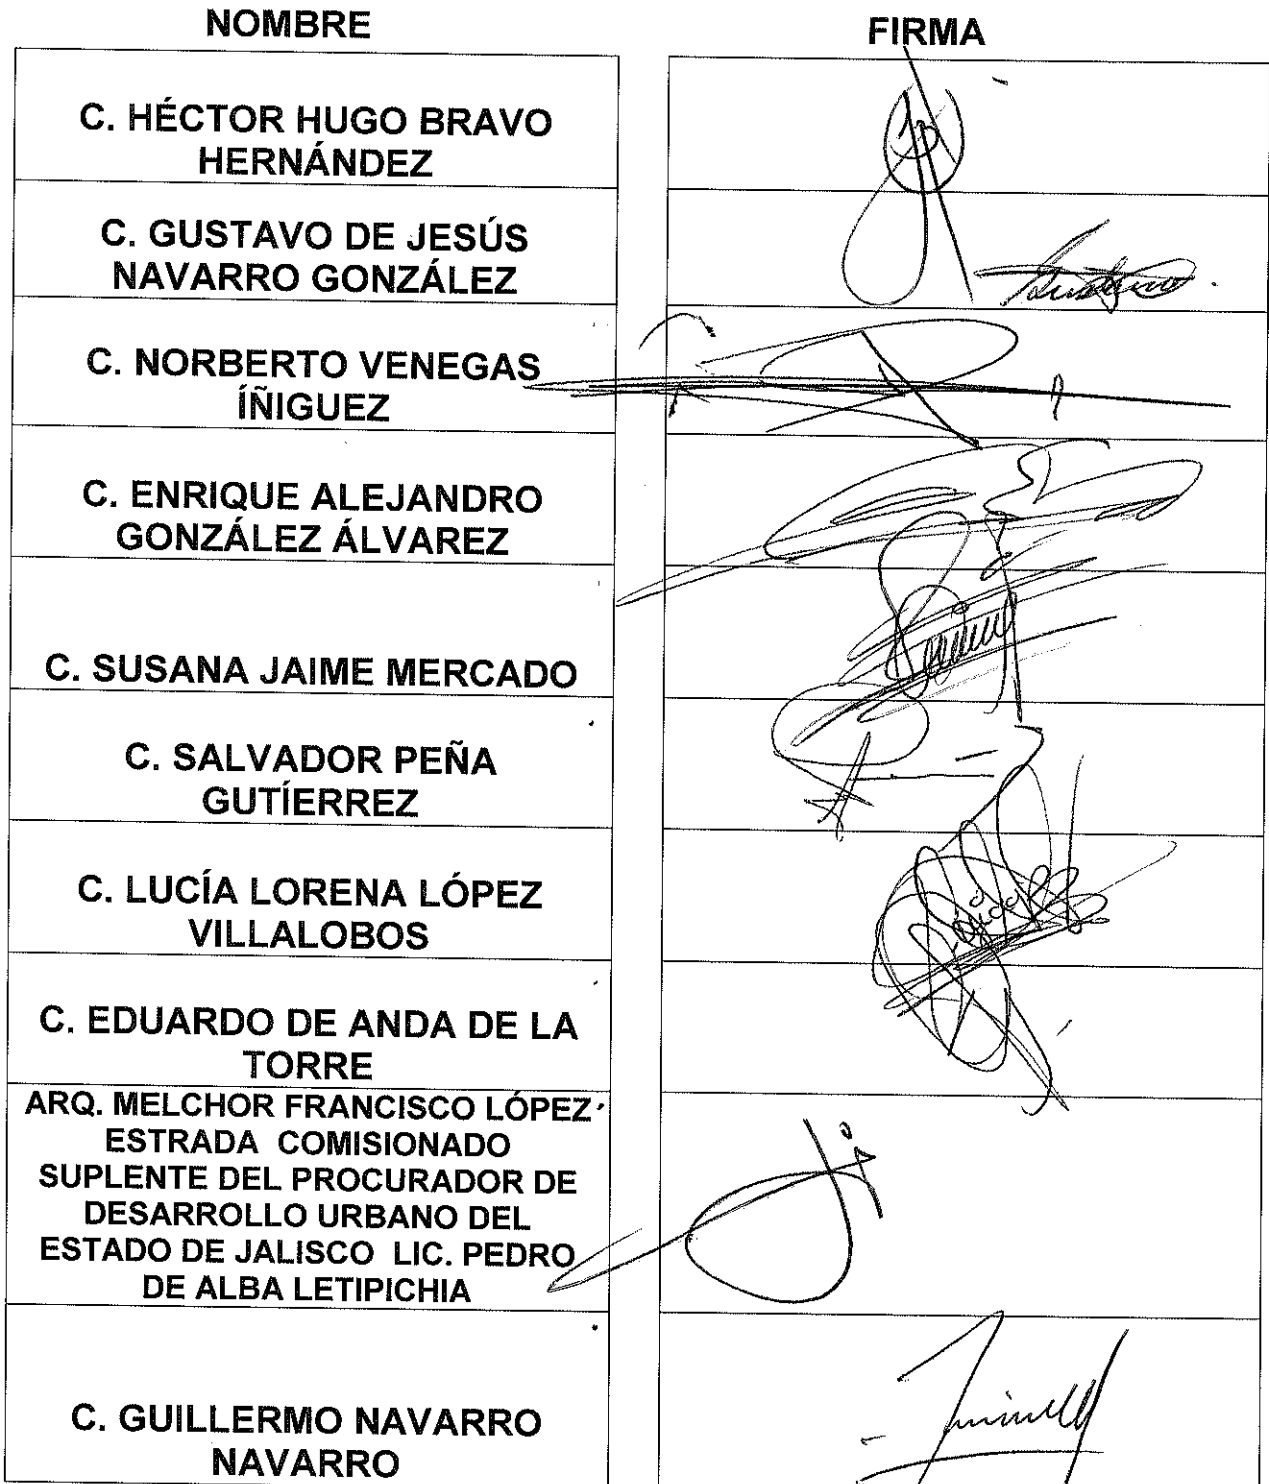 NOMBRE
FIRMA
C. HÉCTOR HUGO BRAVO
HERNÁNDEZ
C. GUSTAVO DE JESÚS
NAVARRO GONZÁLEZ
C. NORBERTO VENEGAS
ÍÑIGUEZ
C. ENRIQUE ALEJANDRO
GONZÁLEZ ÁLVAREZ
C. SUSANA JAIME MERCADO
C. SALVADOR PEÑA
GUTÍERREZ
C. LUCÍA LORENA LÓPEZ
VILLALOBOS
C. EDUARDO DE ANDA DE LA
TORRE
ARQ. MELCHOR FRANCISCO LÓPEZ
ESTRADA COMISIONADO
SUPLENTE DEL PROCURADOR DE
DESARROLLO URBANO DEL
ESTADO DE JALISCO LIC. PEDRO
DE ALBA LETIPICHIA
C. GUILLERMO NAVARRO
NAVARRO